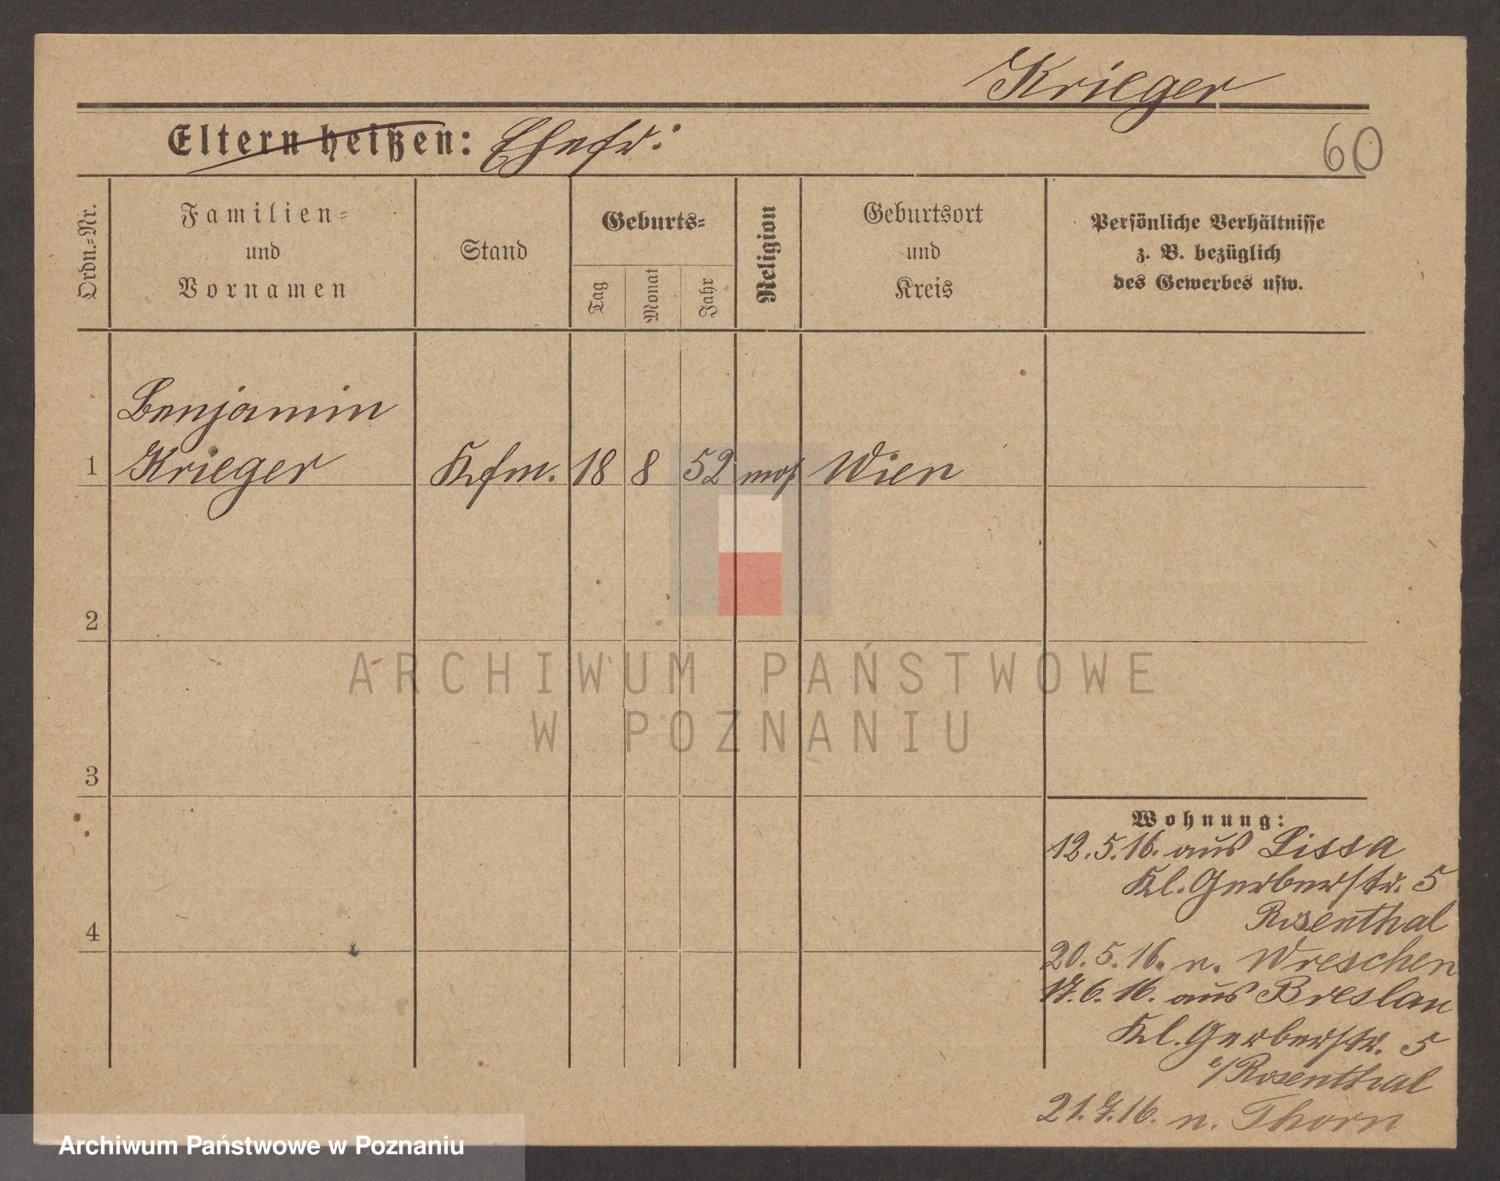 Krieger
Eltern heißen: Ehefr:
60
Ordn.-Nr.
Familien-
und
Vornamen
Stand
Geburts-
Tag
Monat
Jahr
Religion
Geburtsort
und
Kreis
Persönliche Verhältnisse
z. B. bezüglich
des Gewerbes usw.
Benjamin
1 Krieger Kfm. 18 8 52 mos Wien
2
3
4
Wohnung:
12.5.16. aus Lissa
Kl. Gerberstr. 5
Rosenthal
20.5.16. n. Wreschen
17.6.16. aus Breslau
Kl. Gerberstr. 5
b/Rosenthal
21.7.16. n. Thorn
ARCHIWUM PAŃSTWOWE
W POZNANIU
Archiwum Państwowe w Poznaniu